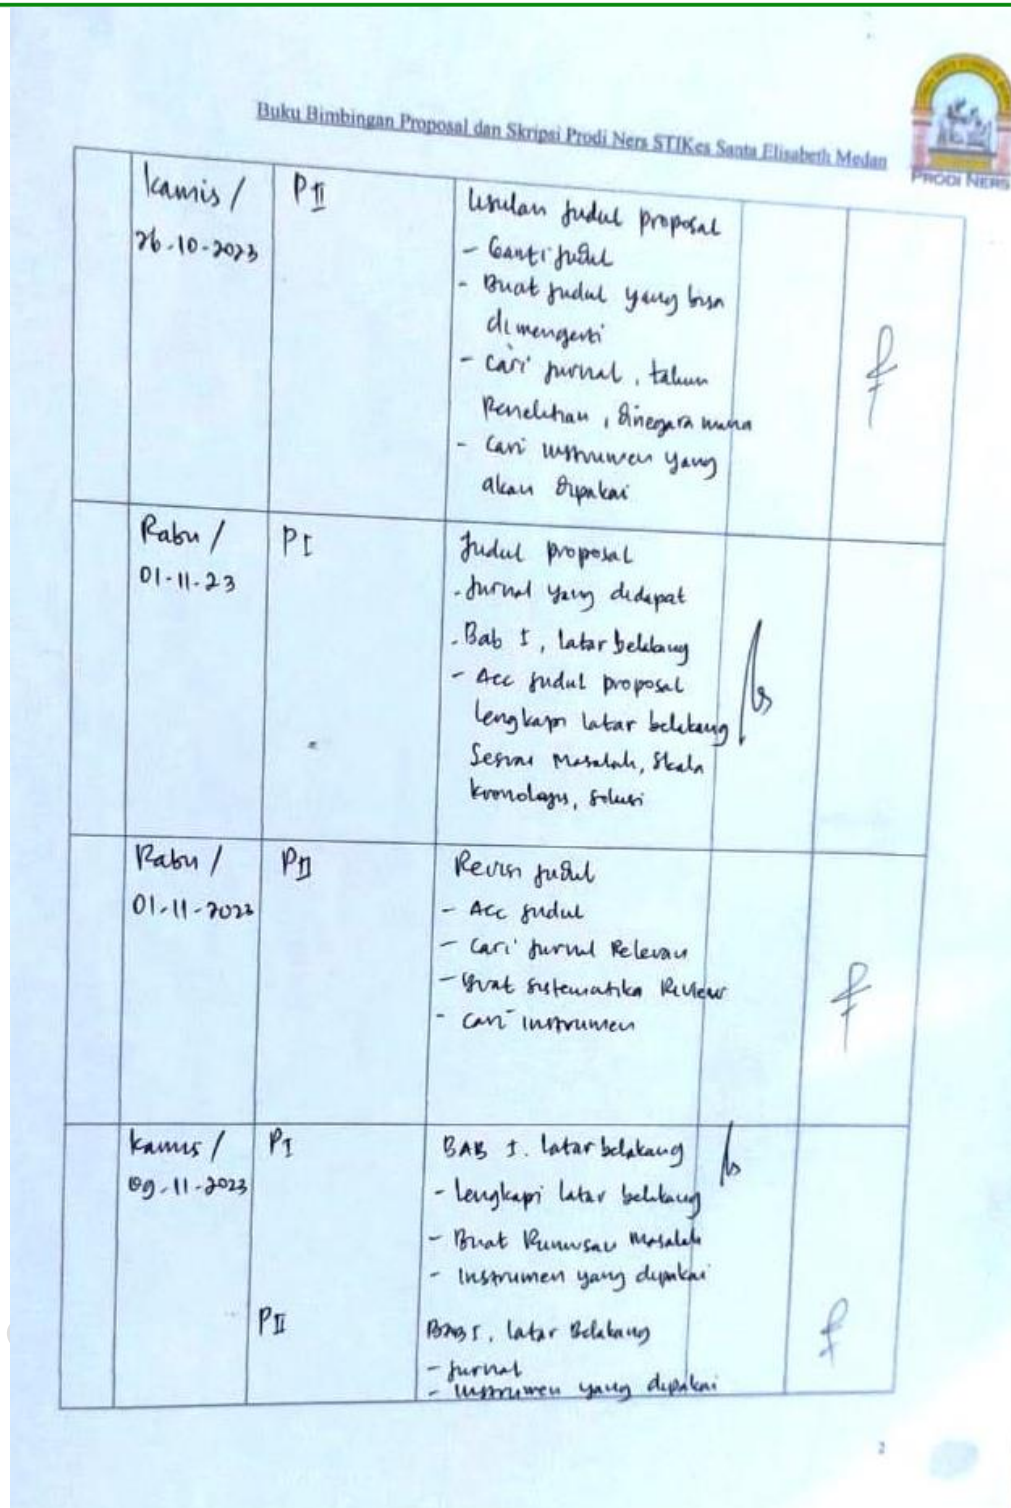 Buku Bimbingan Proposal dan Skripsi Prodi Ners STIKes Santa Elisabeth Medan
PRODI NERS
Kamis /
26-10-2023
P II
Usulan Judul proposal
- Ganti judul
- Buat judul yang bisa
dimengerti
- Cari jurnal, tahun
Penelitian, dinegara mana
- Cari instrumen yang
akan dipakai
Rabu /
01-11-23
P I
Judul proposal
- Jurnal yang didapat
- Bab I, latar belakang
- Acc judul proposal
lengkapi latar belakang
Sesuai Masalah, Skala
kronologis, solusi
Rabu /
01-11-2023
P II
Revisi judul
- Acc judul
- Cari jurnal Relevan
- Buat sistematika Review
- Cari instrumen
Kamis /
09-11-2023
P I
BAB I. latar belakang
- lengkapi latar belakang
- Buat Rumusan Masalah
- Instrumen yang dipakai
P II
BAB I, latar Belakang
- Jurnal
- Instrumen yang dipakai
2